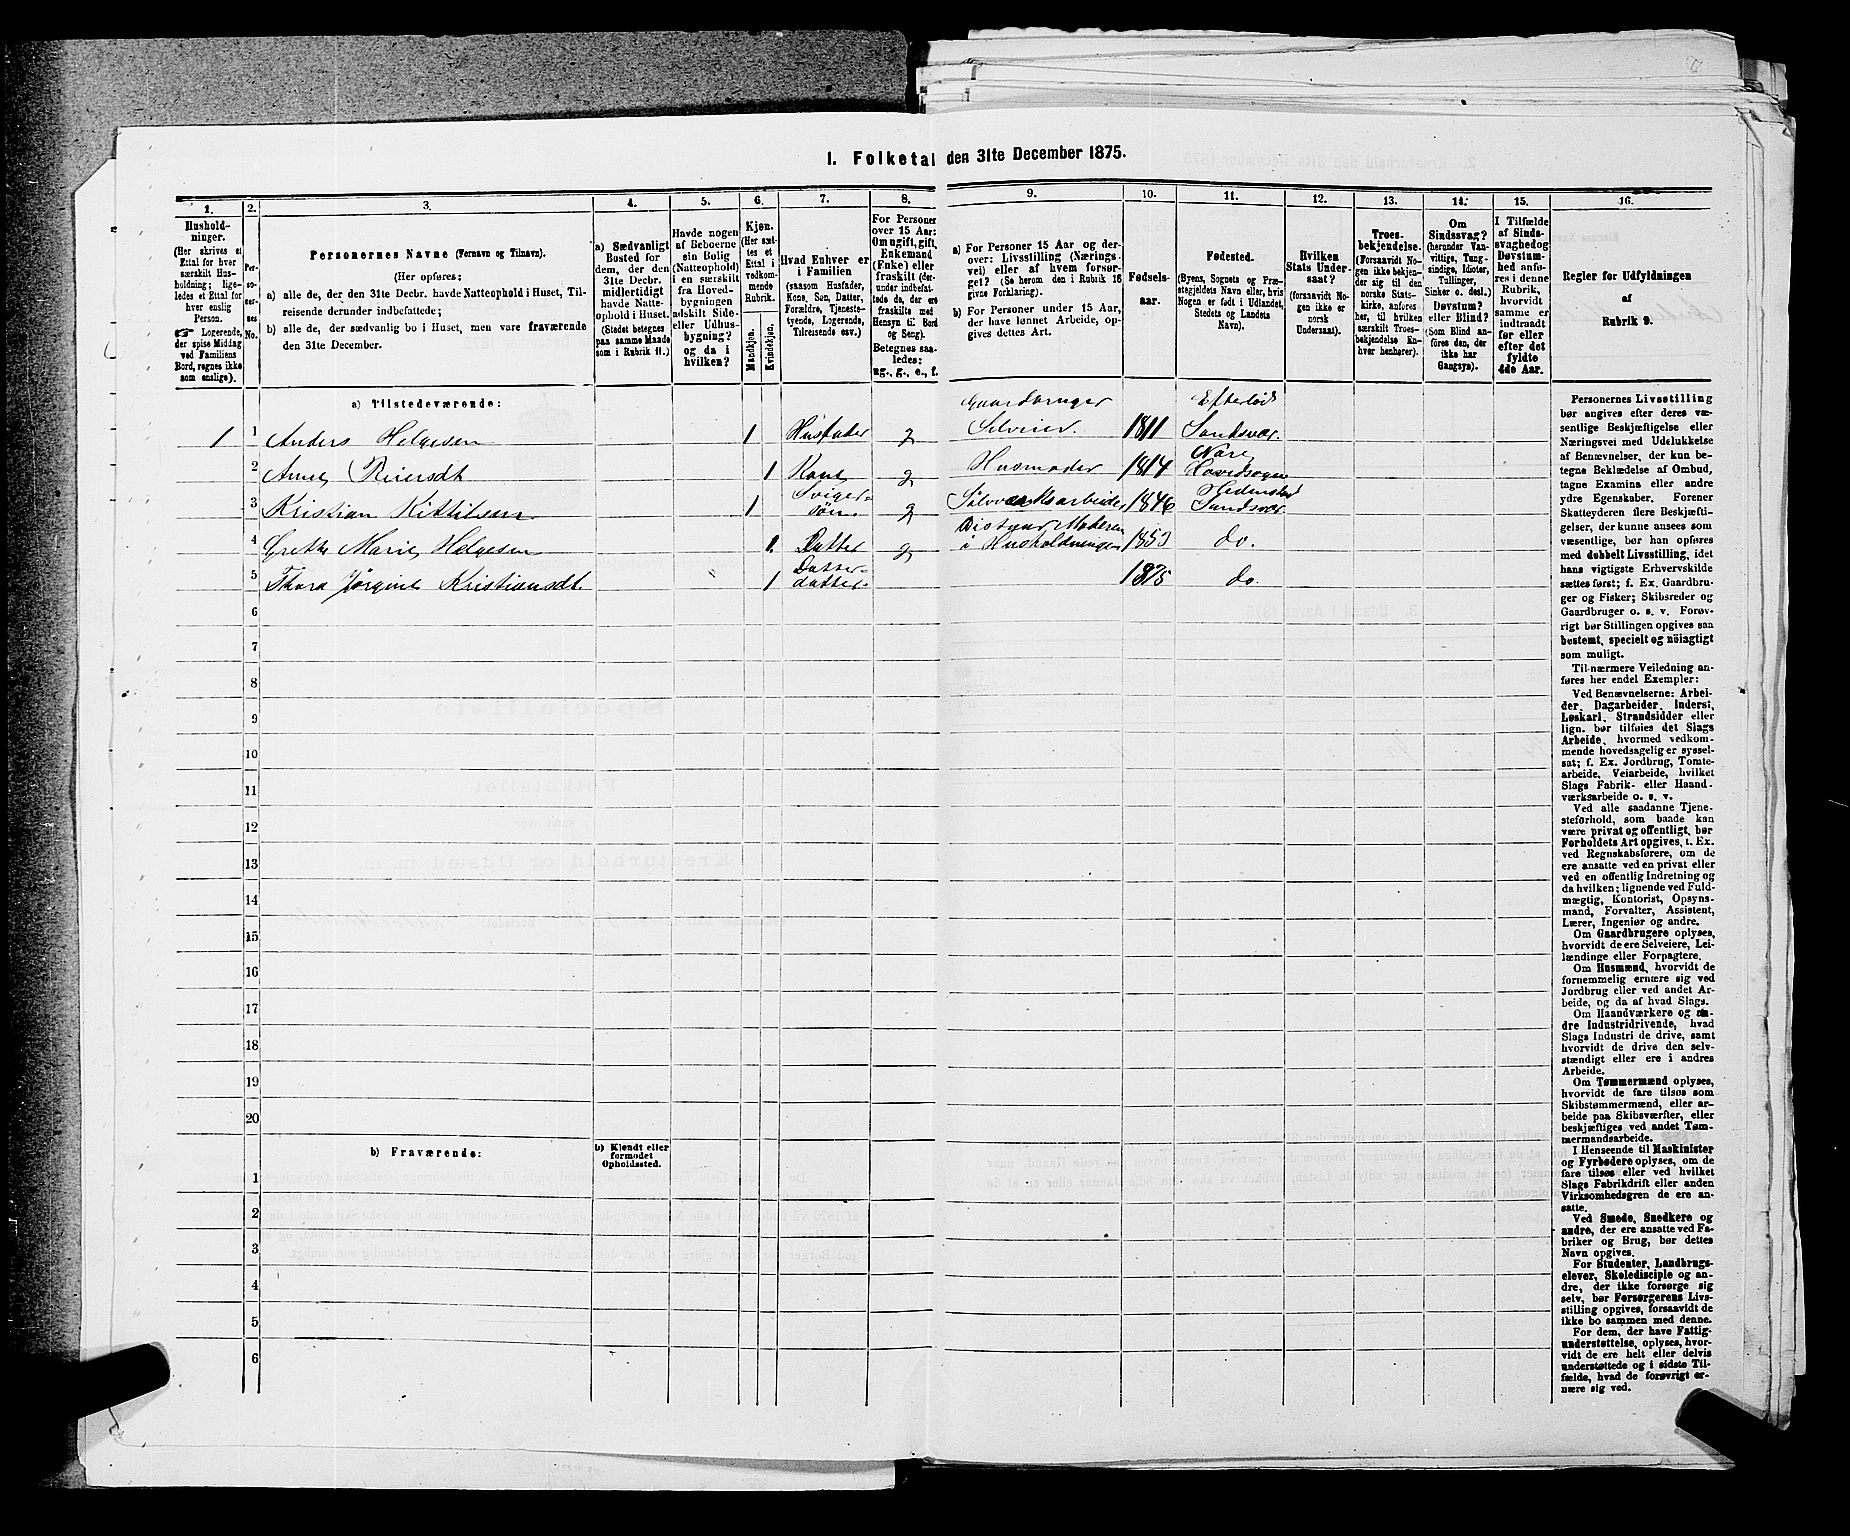 1. Folketal den 31te December 1875.
1.
2.
3.
4.
5.
6.
7.
8.
9.
10.
11.
12.
13.
14.
15.
16.
Hushold-
ninger.
(Her skrives et
Ettal for hver
særskilt Hus-
holdning; lige-
ledes et Ettal for
hver enslig
Person.
☞ Logerende,
der spise Middag
ved Familiens
Bord, regnes ikke
som enslige).
Per-
so-
ner-
nes
No.
Personernes Navne (Fornavn og Tilnavn).
(Her opføres:
a) alle de, der den 31te Decbr. havde Natteophold i Huset, Til-
reisende derunder indbefattede;
b) alle de, der sædvanlig bo i Huset, men vare fraværende
den 31te December.
a) Sædvanligt
Bosted for
dem, der den
31te Decbr.
midlertidigt
havde Natte-
ophold i Huset.
(Stedet betegnes
paa samme Maade
som i Rubrik 11.)
Havde nogen
af Beboerne
sin Bolig
(Natteophold)
i en særskilt
fra Hoved-
bygningen
adskilt Side-
eller Udhus-
bygning?
og da i
hvilken?
Kjøn.
(Her sæt-
tes et
Ettal i
vedkom-
mende
Rubrik.
Mandkjøn.
Kvindekjøn.
Hvad Enhver er
i Familien
(saasom Husfader,
Kone, Søn, Datter,
Forældre, Tjeneste-
tyende, Logerende,
Tilreisende osv.)
For Personer
over 15 Aar:
Om ugift, gift,
Enkemand
(Enke) eller
fraskilt (der-
under indbefat-
tede de, der ere
fraskilte med
Hensyn til Bord
og Seng).
Betegnes saa-
ledes:
ug., g., e., f.
a) For Personer 15 Aar og der-
over: Livsstilling (Nærings-
vei) eller af hvem forsør-
get? (Se herom den i Rubrik 16
givne Forklaring).
b) For Personer under 15 Aar,
der have lønnet Arbeide, op-
gives dettes Art.
Fødsels-
aar.
Fødested.
(Byens, Sognets og Præ-
stegjeldets Navn eller, hvis
Nogen er født i Udlandet,
Stedets og Landets
Navn).
Hvilken
Stats Under-
saat?
(forsaavidt No-
gen ikke er
norsk
Undersaat).
Troes-
bekjendelse.
(Forsaavidt No-
gen ikke bekjen-
der sig til den
norske Stats-
kirke, anføres
her, til hvilken
særskilt Troes-
bekjendelse En-
hver henhører).
Om
Sindssvag?
(herunder Van-
vittige, Tung-
sindige, Idioter,
Tullinger,
Sinker o. desl.)
Døvstum?
eller Blind?
(Som Blind an-
føres den, der
ikke har
Gangsyn).
I Tilfælde
af Sinds-
svaghed og
Døvstum-
hed anfø-
res i denne
Rubrik,
hvorvidt
samme er
indtraadt
før eller
efter det
fyldte
4de Aar.
Regler for Udfyldningen
af
Rubrik 9.
a) Tilstedeværende:
1 1 Anders Helgesen 1 Husfader g Gaardbruger Selveier. 1811 Eftelød Sandsvær.
2 Anne Reiersdt 1 Kone g Husmoder 1814 Nore Hovedsogn
3 Kristian Kittilsen 1 Sviger-søn g Sølvverksarbeider 1846 Hedensted Sandsvær.
4 Grethe Marie Helgesen 1 Datter g Bistaar Moderen i Husholdningen 1853 do.
5 Thora Jørgine Kristiansdt. 1 Datter-datter 1875 do
6
7
8
9
10
11
12
13
14
15
16
17
18
19
20
b) Fraværende:
b) Kjendt eller
formodet
Opholdssted.
1
2
3
4
5
6
Personernes Livsstilling
bør angives efter deres væ-
sentlige Beskjæftigelse eller
Næringsvei med Udelukkelse
af Benævnelser, der kun be-
tegne Beklædelse af Ombud,
tagne Examina eller andre
ydre Egenskaber. Forener
Skatteyderen flere Beskjæfti-
gelser, der kunne ansees som
væsentlige, bør han opføres
med dobbelt Livsstilling, idet
hans vigtigste Erhvervskilde
sættes først; f. Ex. Gaardbru-
ger og Fisker; Skibsreder og
Gaardbruger o. s. v. Forøv-
rigt bør Stillingen opgives saa
bestemt, specielt og nöiagtigt
som muligt.
Til nærmere Veiledning an-
føres her endel Exempler:
Ved Benævnelserne: Arbei-
der, Dagarbeider, Inderst,
Løskarl, Strandsidder eller
lign. bør tilføies det Slags
Arbeide, hvormed vedkom-
mende hovedsagelig er syssel-
sat; f. Ex. Jordbrug, Tomte-
arbeide, Veiarbeide, hvilket
Slags Fabrik- eller Haand-
værksarbeide o. s. v.
Ved alle saadanne Tjene-
steforhold, som baade kan
være privat og offentligt, bør
Forholdets Art opgives, t. Ex.
ved Regnskabsførere, om de
ere ansatte ved en privat eller
ved en offentlig Indretning og
da hvilken; lignende ved Fuld-
mægtig, Kontorist, Opsyns-
mand, Forvalter, Assistent,
Lærer, Ingeniør og andre.
Om Gaardbrugere oplyses,
hvorvidt de ere Selveiere, Lei-
lændinge eller Forpagtere.
Om Husmænd, hvorvidt de
fornemmelig ernære sig ved
Jordbrug eller ved andet Ar-
beide, og da af hvad Slags.
Om Haandværkere og an-
dre Industridrivende, hvad
Slags Industri de drive, samt
hvorvidt de drive den selv-
stændigt eller ere i andres
Arbeide.
Om Tømmermænd oplyses,
hvorvidt de fare tilsøs som
Skibstømmermænd, eller ar-
beide paa Skibsværfter, eller
beskjæftiges ved andet Tøm-
mermandsarbeide.
I Henseende til Maskinister
og Fyrbødere oplyses, om de
fare tilsøs eller ved hvilket
Slags Fabrikdrift eller anden
Virksomhedsgren de ere an-
satte.
Ved Smede, Snedkere og
andre, der ere ansatte ved Fa-
briker og Brug, bør dettes
Navn opgives.
For Studenter, Landbrugs-
elever, Skoledisciple og an-
dre, der ikke forsørge sig
selv, bør Forsørgerens Livs-
stilling opgives, forsaavidt de
ikke bo sammen med denne.
For dem, der have Fattig-
understøttelse, oplyses, hvor-
vidt de ere helt eller delvis
understøttede og i sidste Til-
fælde, hvad de forøvrigt er-
nære sig ved.